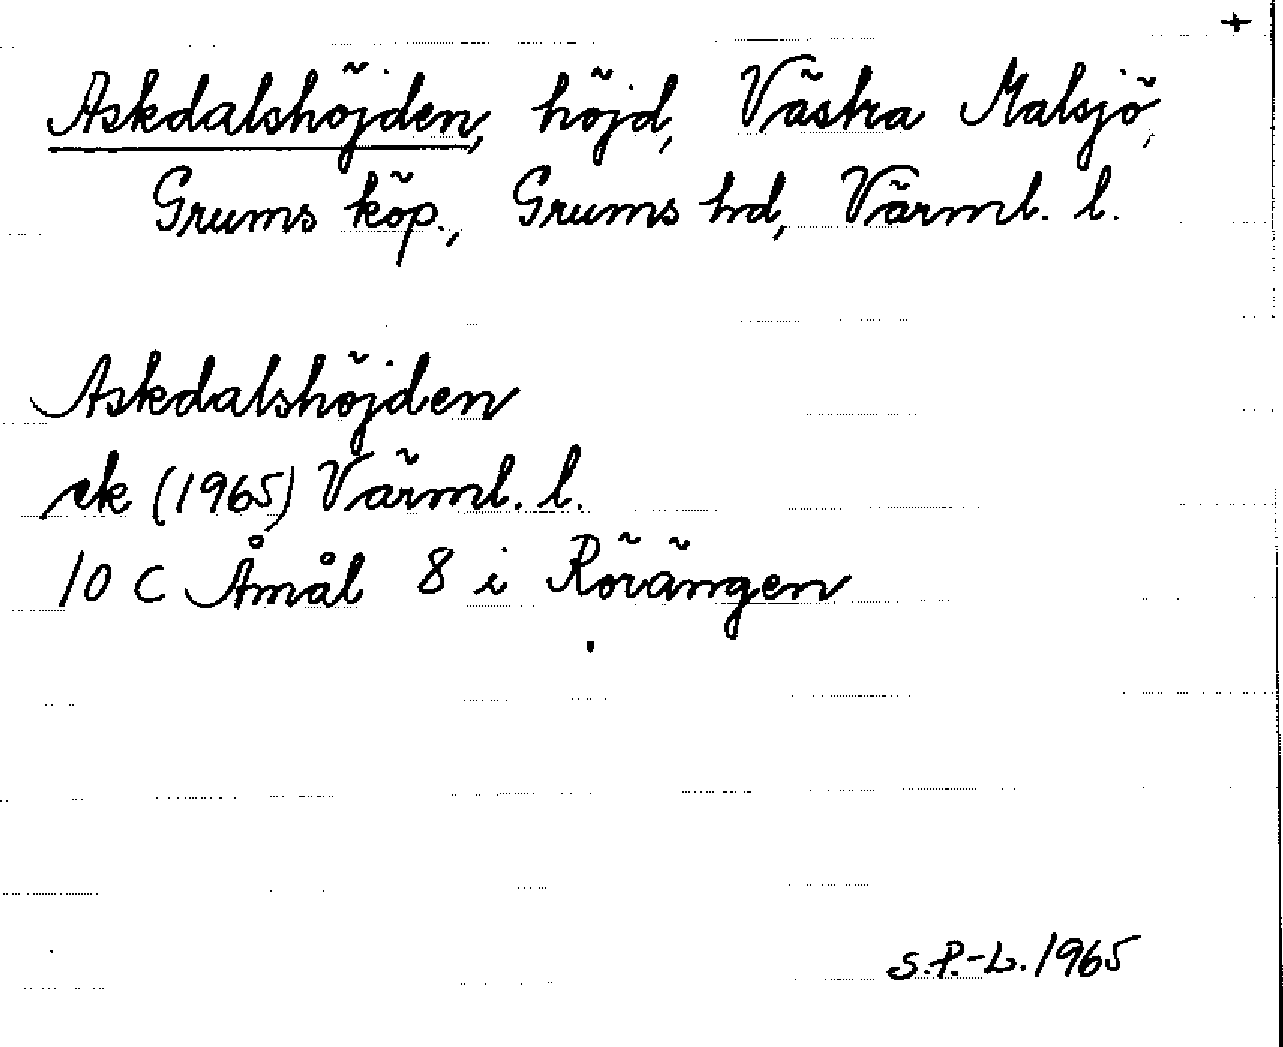 +
Askdalshöjden, höjd, Västra Malsjö,
Grums köp., Grums hd, Värml. l.
Askdalshöjden
ek (1965) Värml. l.
10 C Åmål 8 i Rörängen
S.P.-L. 1965